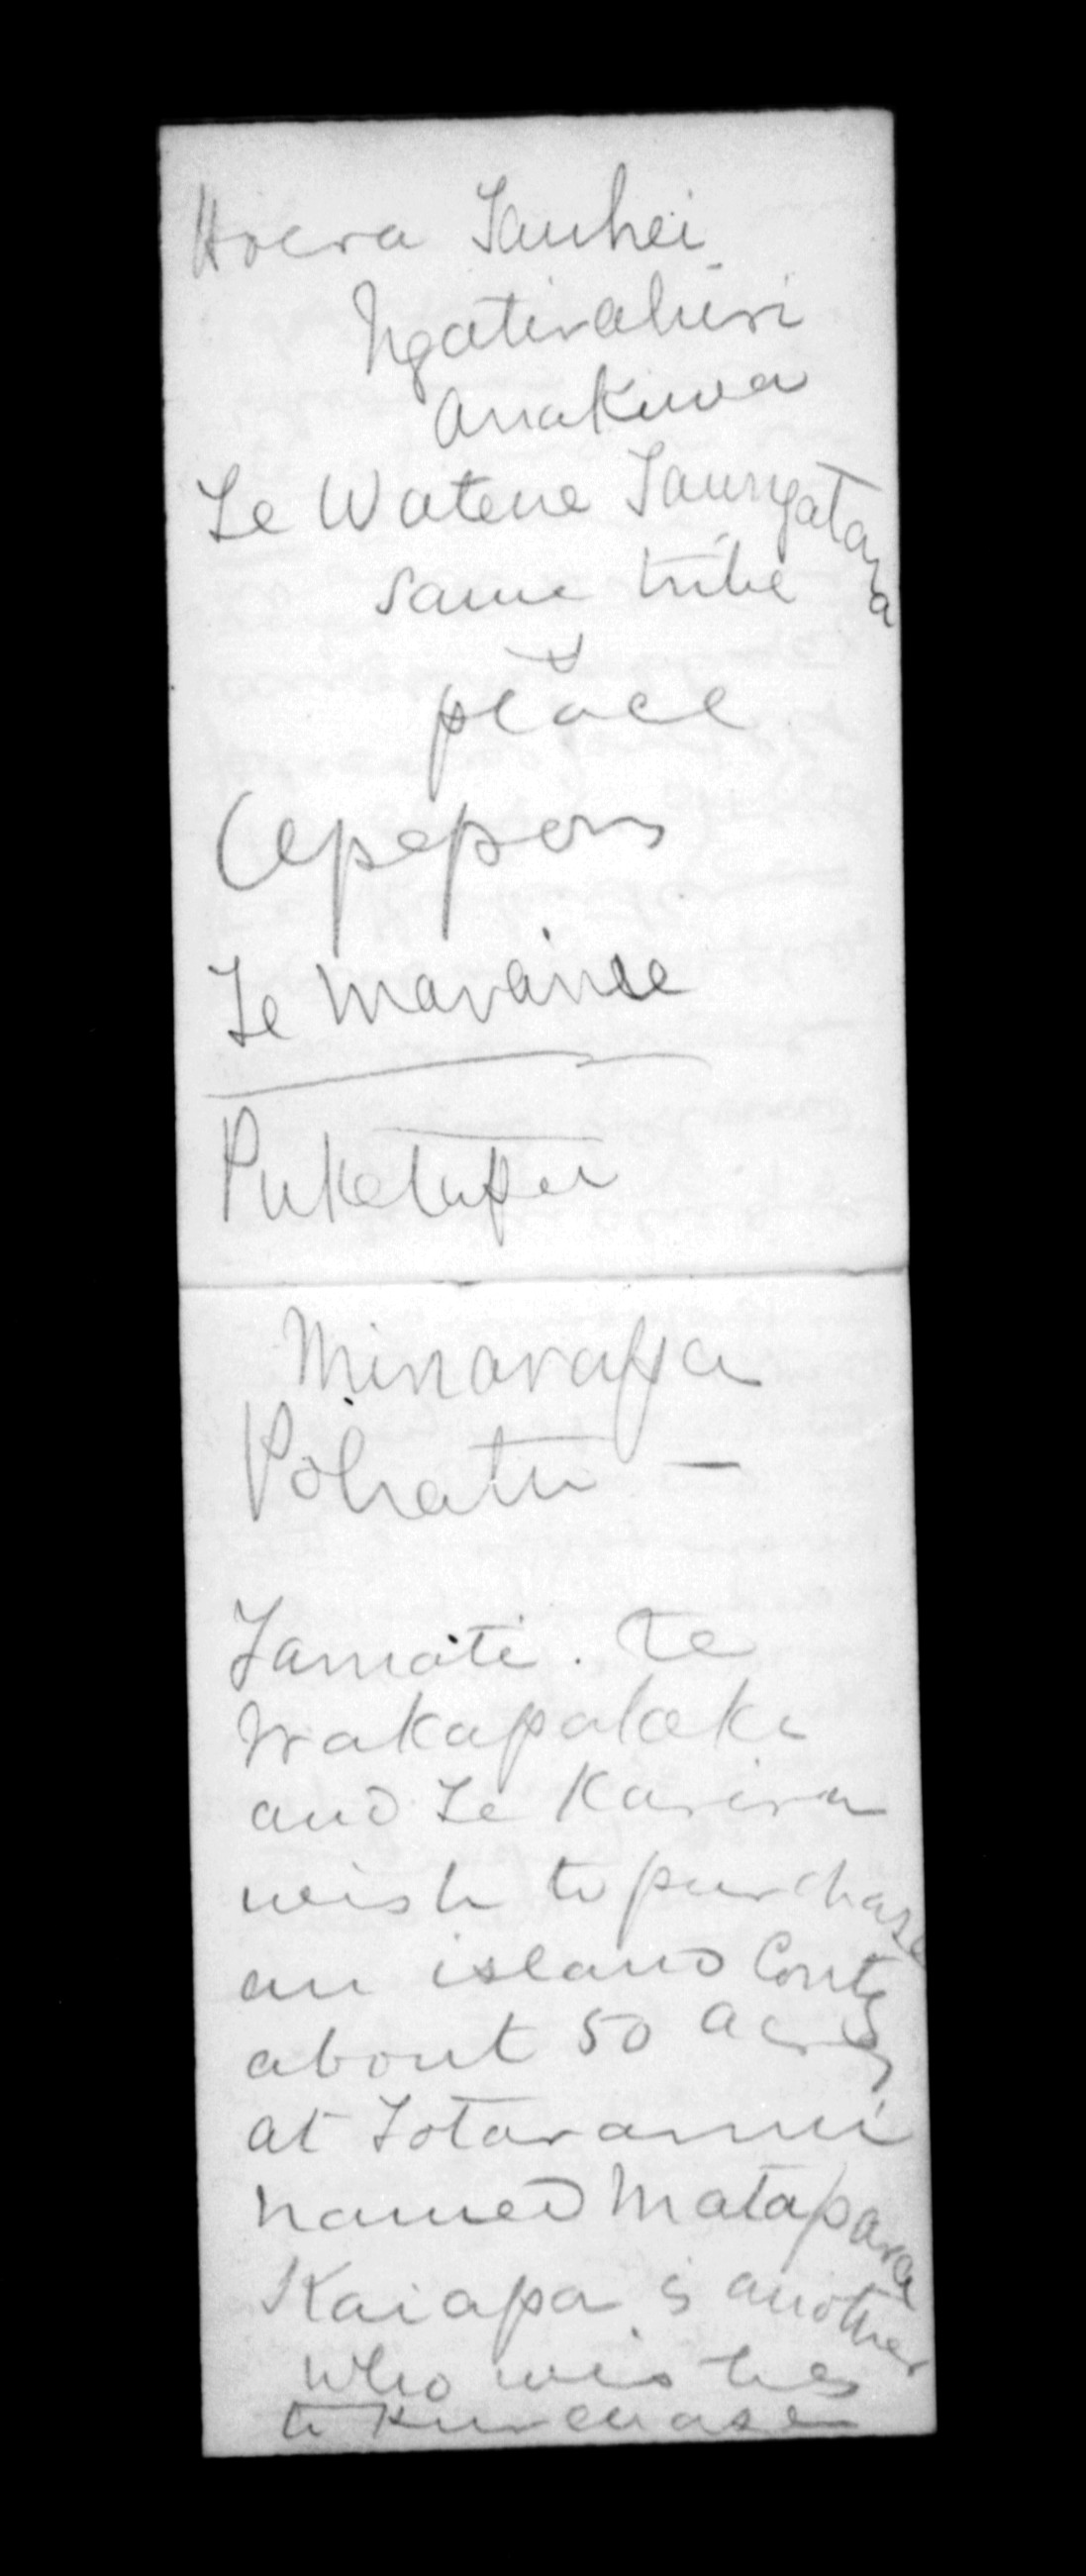 Hoera Tauhei
Ngatirahiri
Anakiwa
Te Watene Taungatara
same tribe
place
Te
Puketapu
Minarapa
Pohatu —
Tamati. te
Wakapakeke
and Te Karira
wish to purchase
an island Contg
about 50 acres
at Totaranui
named Matapara
Kaiapa is another
who wishes
to purchase